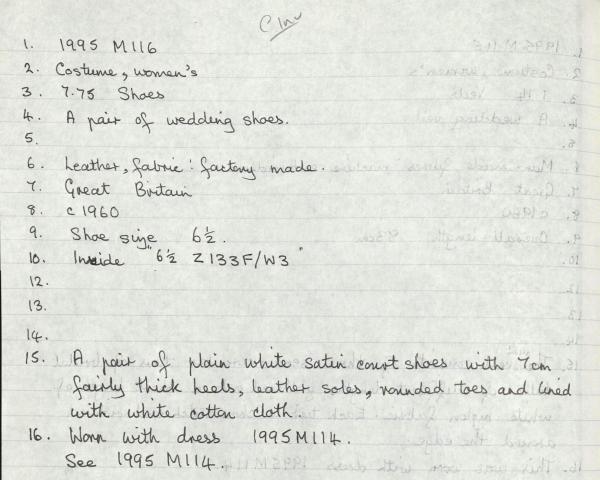 C Inv
1. 1995 M116
2. Costume, women's
3. 7.75 Shoes
4. A pair of wedding shoes.
5.
6. Leather, fabric : factory made.
7. Great Britain
8. c1960
9. Shoe size 6½.
10. Inside "6½ Z133F/W3"
12.
13.
14.
15. A pair of plain white satin court shoes with 7cm
fairly thick heels, leather soles, rounded toes and lined
with white cotton cloth.
16. Worn with dress 1995M114.
See 1995 M114.